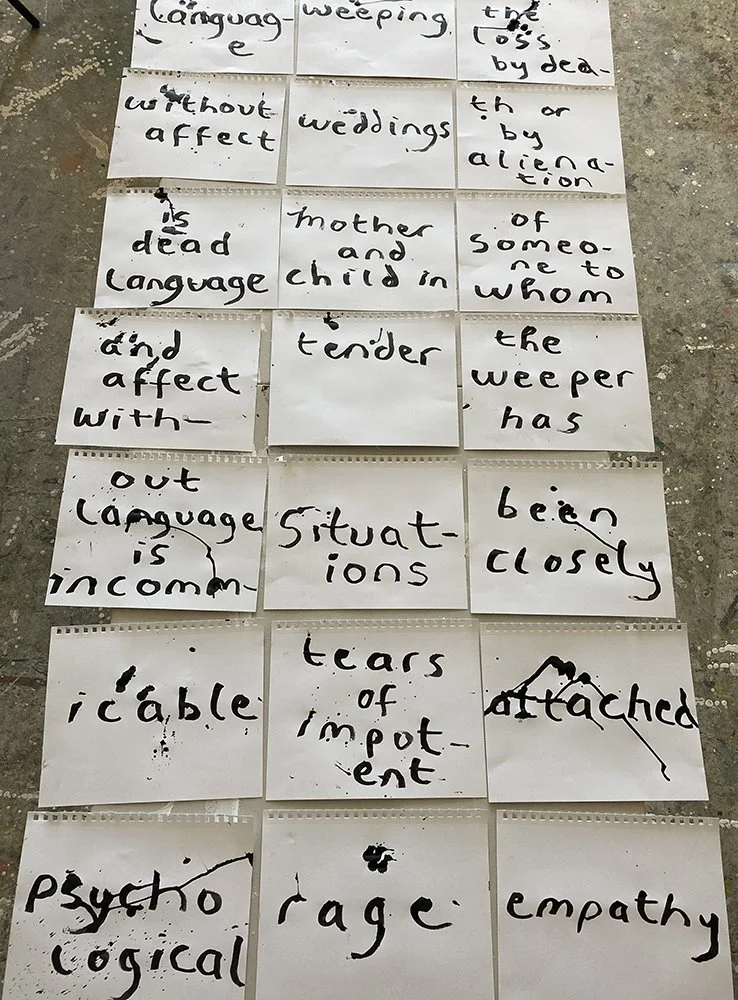 Languag-
e
without
affect
is
dead
Language
and
affect
with-
out
Language
is
incomm-
icable
psycho
logical
weeping
weddings
mother
and
child in
tender
Situat-
ions
tears
of
impot-
ent
rage
the
loss
by dea-
th or
by
aliena-
tion
of
someo-
ne to
whom
the
weeper
has
been
closely
attached
empathy